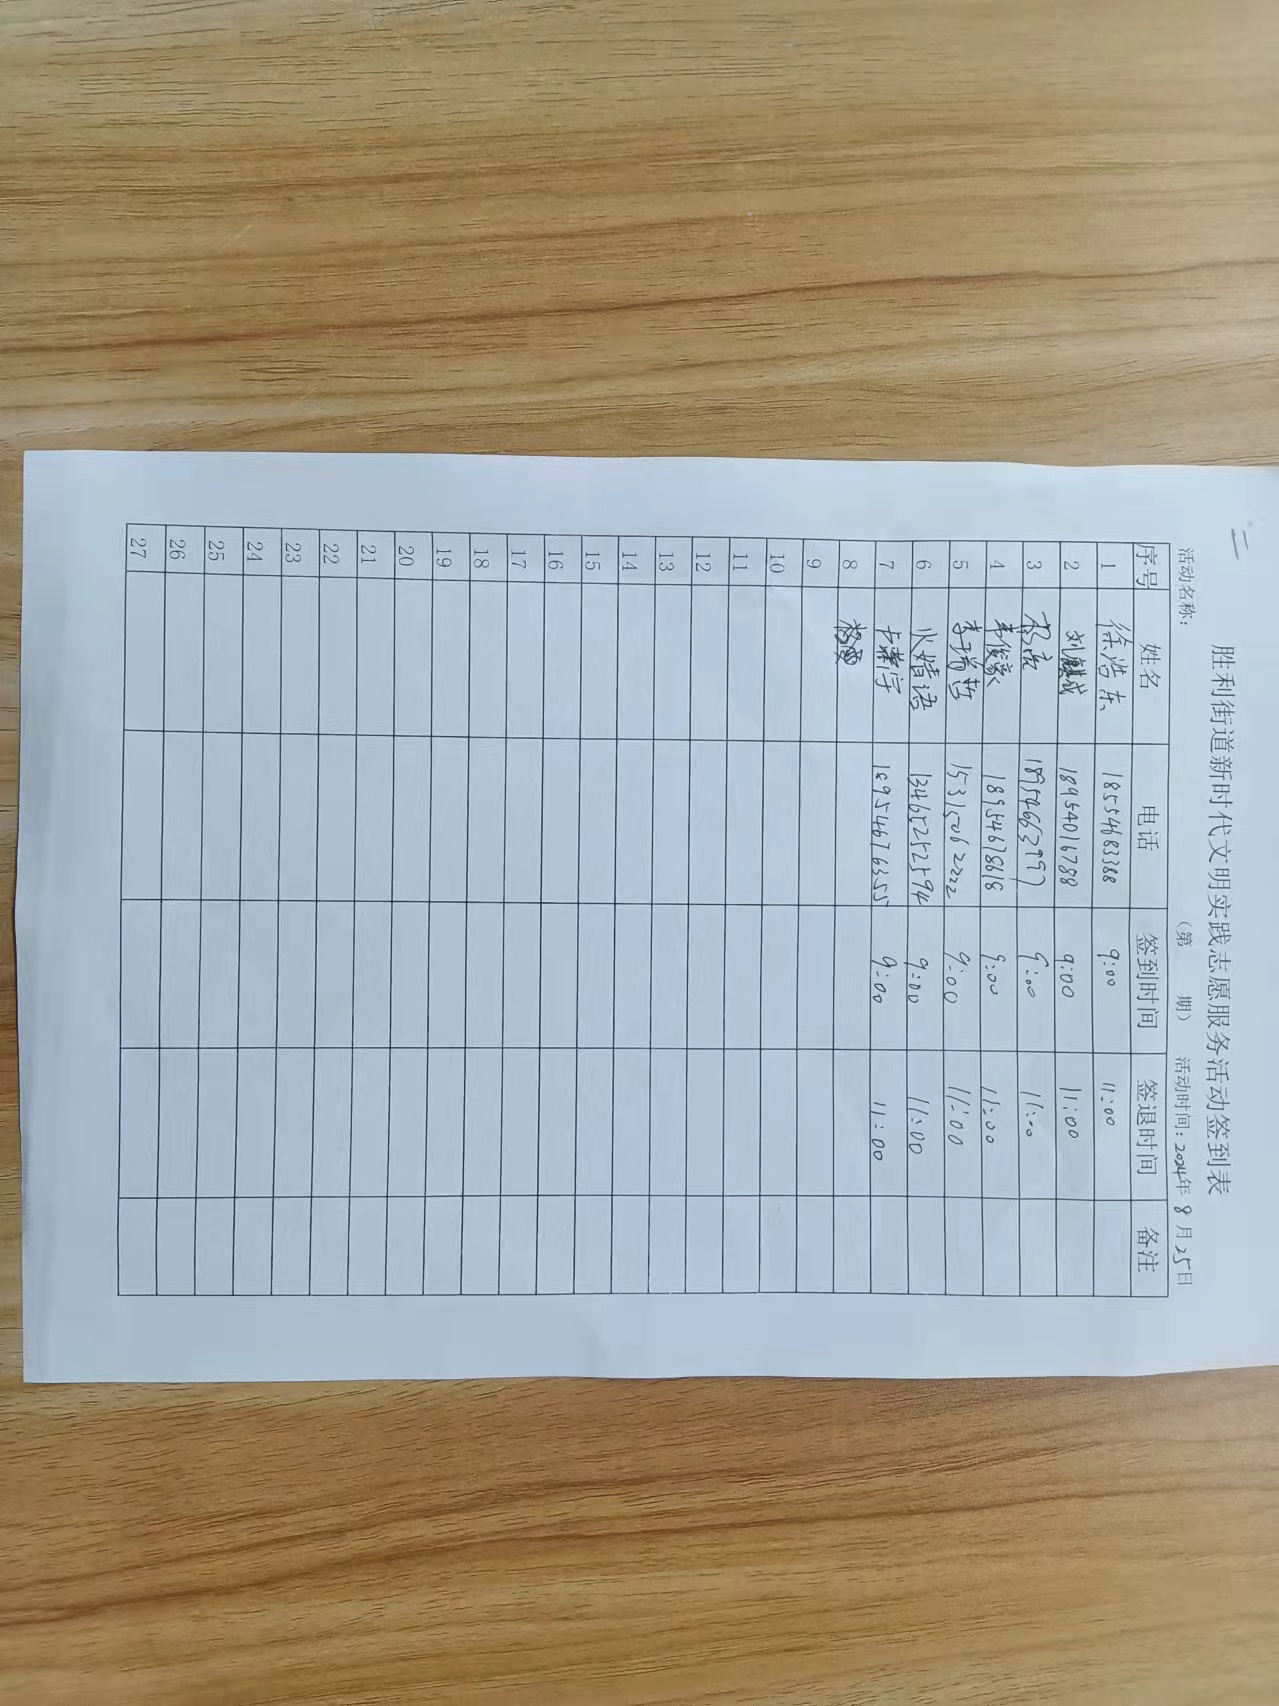 二
胜利街道新时代文明实践志愿服务活动签到表
活动名称： （第 期） 活动时间：2024年 8 月 25日
序号 姓名 电话 签到时间 签退时间 备注
1 徐浩东 18554683388 9:00 11:00
2 刘麒成 18954016788 9:00 11:00
3 18954663997 9:00 11:00
4 韦俊豪 18954678618 9:00 11:00
5 李瑞哲 15315062222 9:00 11:00
6 火婧语 13465252594 9:00 11:00
7 卞棐宇 18954676355 9:00 11:00
8
9
10
11
12
13
14
15
16
17
18
19
20
21
22
23
24
25
26
27